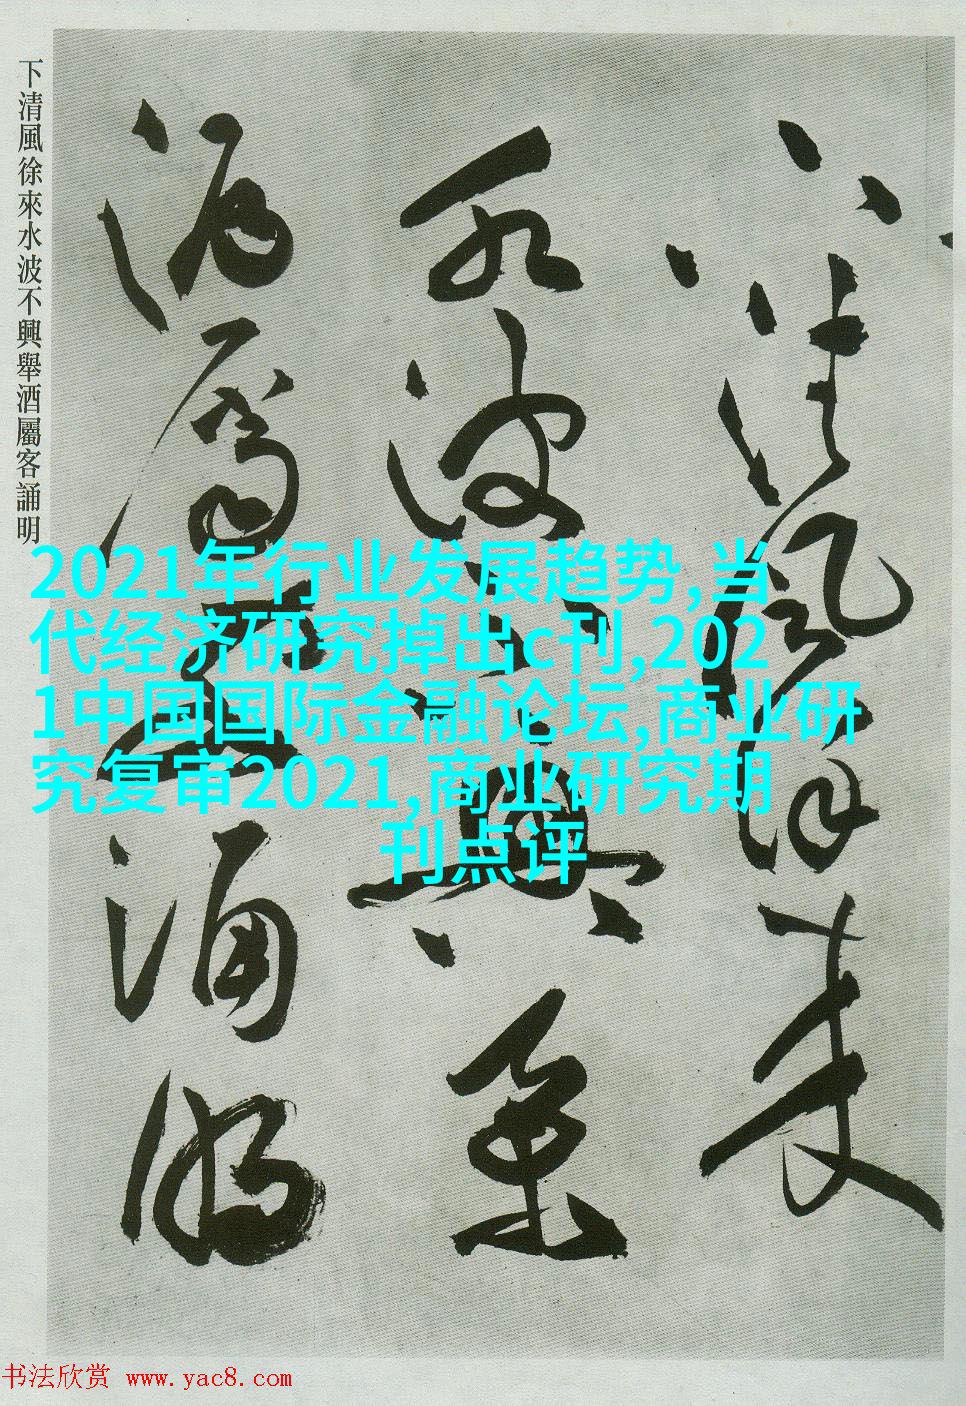 下清風徐來水波不興舉酒屬客誦明
下清風徐來
水波不興舉
酒屬客誦明
2021年行业发展趋势,当
代经济研究掉出c刊,202
1中国国际金融论坛,商业研
究复审2021,商业研究期
刊点评
书法欣赏 www.yac8.com